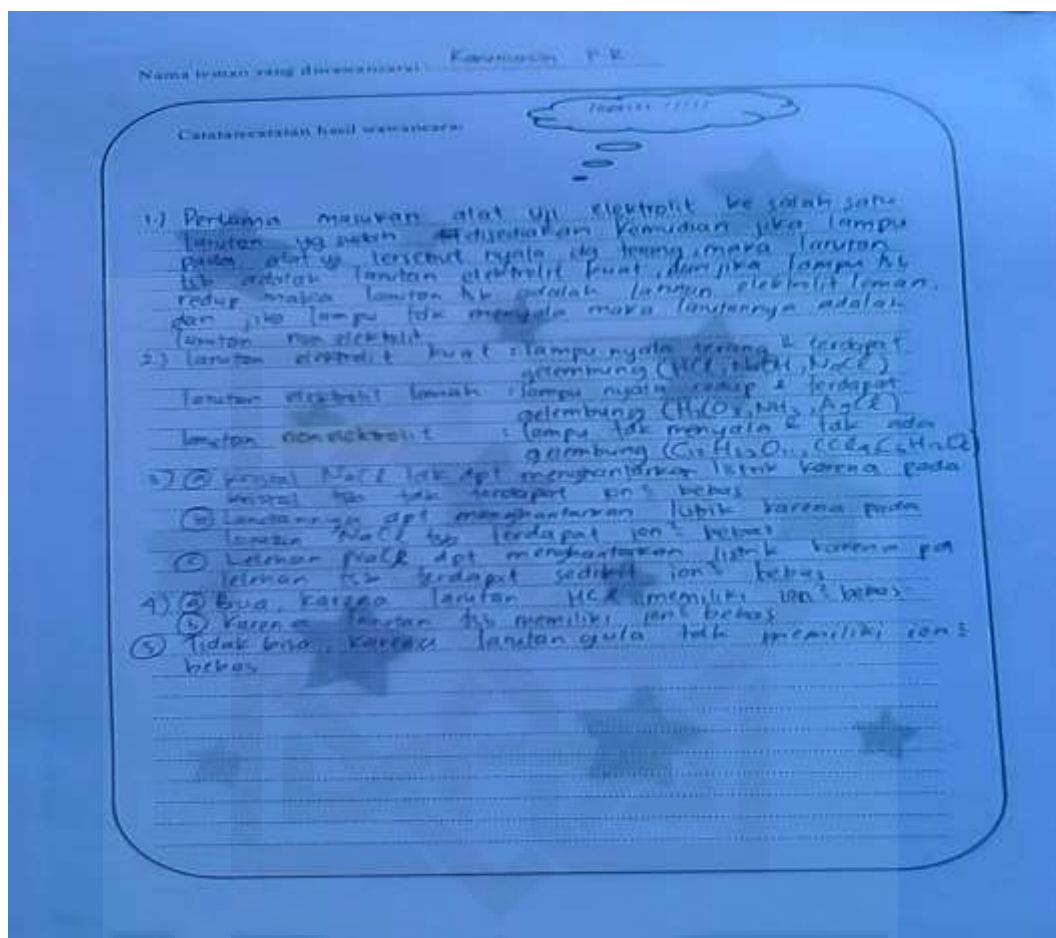 Nama teman yang diwawancarai : P R
Catatan-catatan hasil wawancara:
1.) Pertama masukan alat uji elektrolit ke salah satu
larutan yg sudah disediakan kemudian jika lampu
pada alat uji tersebut nyala dg terang, maka larutan
tsb adalah larutan elektrolit kuat, dan jika lampu tsb
redup maka larutan tsb adalah larutan elektrolit lemah.
dan jika lampu tdk menyala maka larutannya adalah
larutan non elektrolit
2.) larutan elektrolit kuat : lampu nyala terang & terdapat
gelembung (HCl, NaOH, NaCl)
larutan elektrolit lemah : lampu nyala redup & terdapat
gelembung (NH3, AgCl)
larutan non elektrolit : lampu tdk menyala & tdk ada
gelembung
3.) a kristal NaCl tdk dpt menghantarkan listrik karena pada
kristal tsb tdk terdapat ion² bebas
b Larutannya dpt menghantarkan listrik karena pada
larutan NaCl tsb terdapat ion² bebas
c Lelehan dpt menghantarkan listrik karena pd
lelehan tsb terdapat sedikit ion² bebas
4.) a Bisa, karena larutan HCl memiliki ion² bebas
b Karena larutan tsb memiliki ion² bebas
5 Tidak bisa, karena larutan gula tdk memiliki ion²
bebas